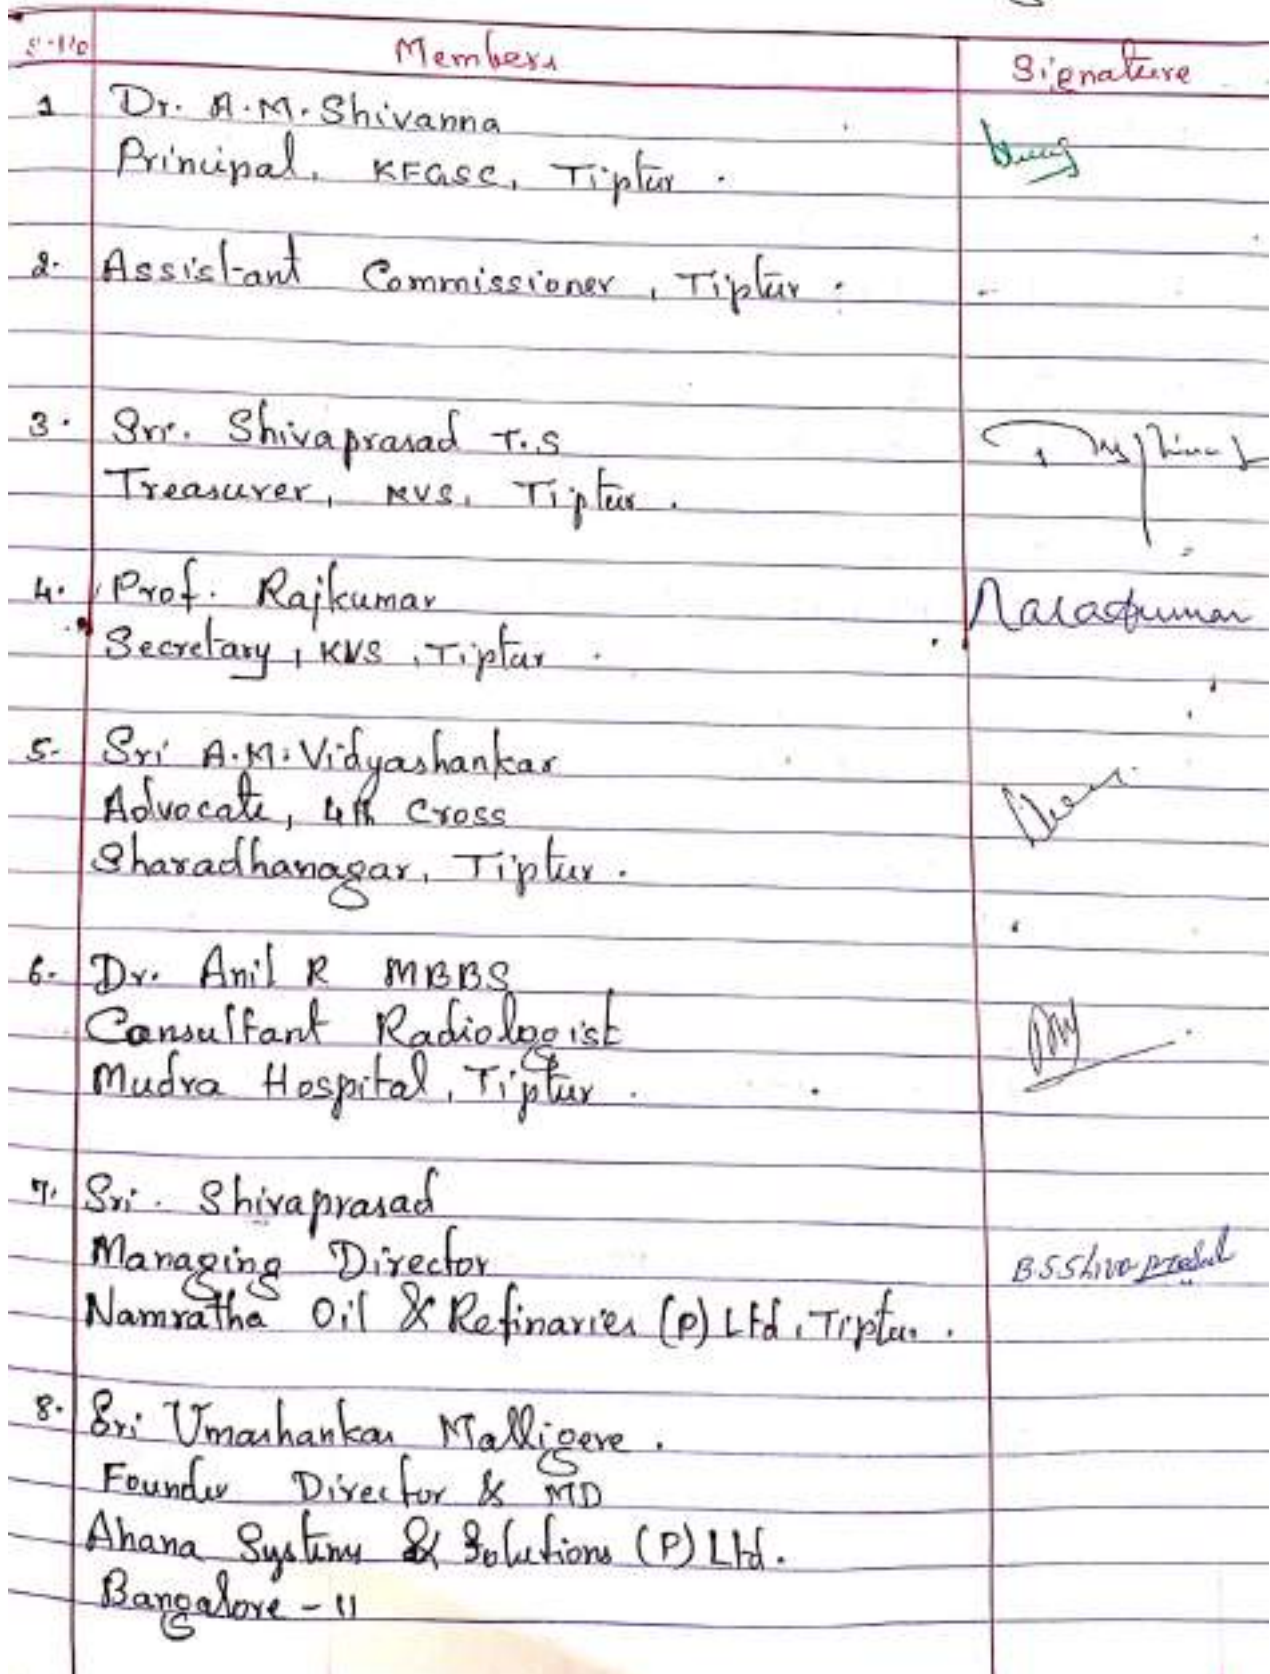 S.No Members Signature
1 Dr. A.M. Shivanna
Principal, KFGSC, Tiptur.
2. Assistant Commissioner, Tiptur.
3. Sri. Shivaprasad T.S
Treasurer, KVS, Tiptur.
4. Prof. Rajkumar
Secretary, KVS, Tiptur.
5. Sri A.M. Vidyashankar
Advocate, 4th Cross
Sharadhanagar, Tiptur.
6. Dr. Anil R MBBS
Consultant Radiologist
Mudra Hospital, Tiptur.
7. Sri. Shivaprasad
Managing Director
BSShivaprasad
Namratha Oil & Refinaries (P) Ltd, Tiptur.
8. Sri Umashankar Malligere.
Founder Director & MD
Ahana Systems & Solutions (P) Ltd.
Bangalore - 11